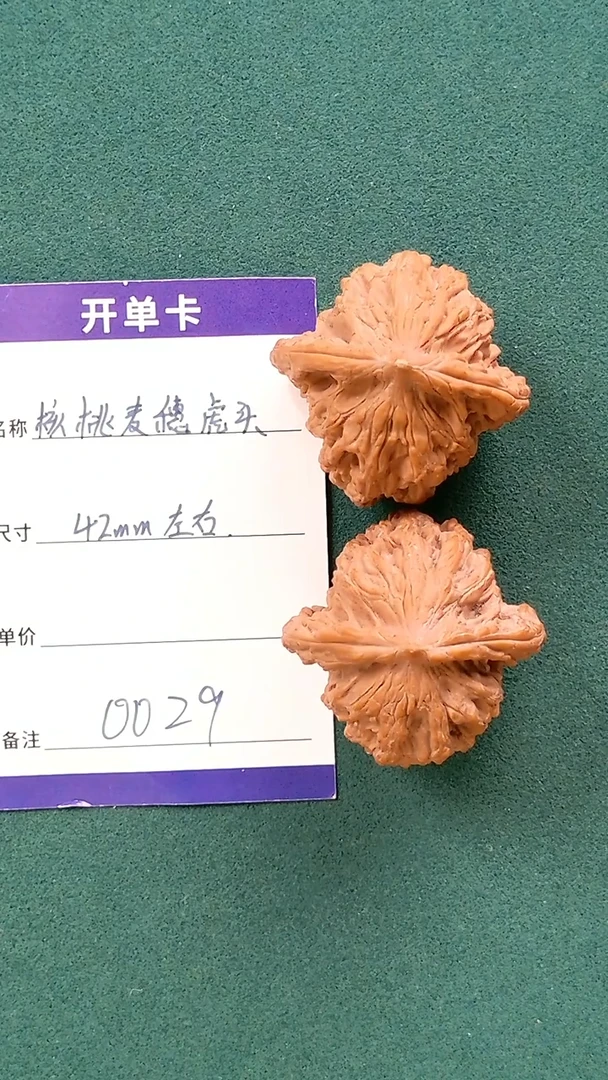 开单卡
名称 核桃麦穗虎头
尺寸 42mm左右.
单价
备注 0029